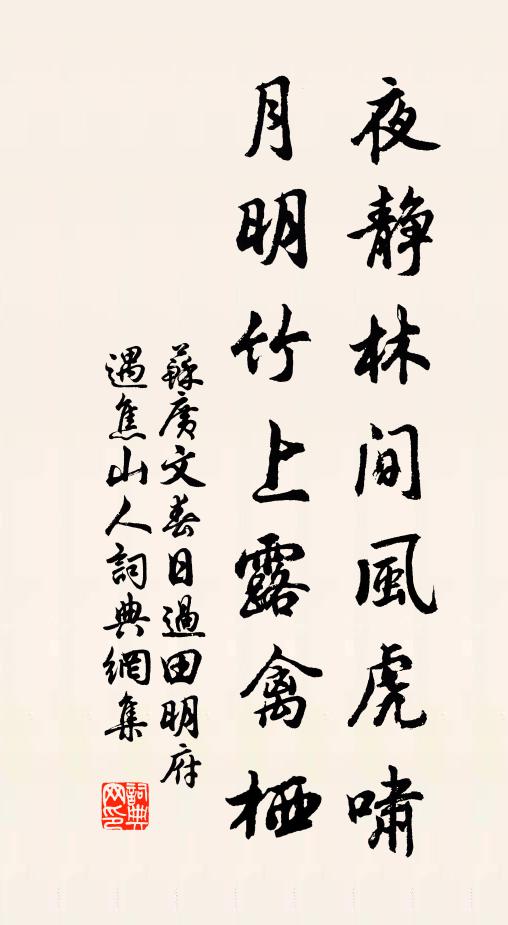 夜静林间風虎嘯
月明竹上露禽栖
蘇廣文春日過田明府
遇焦山人詞典網集
詞典网印